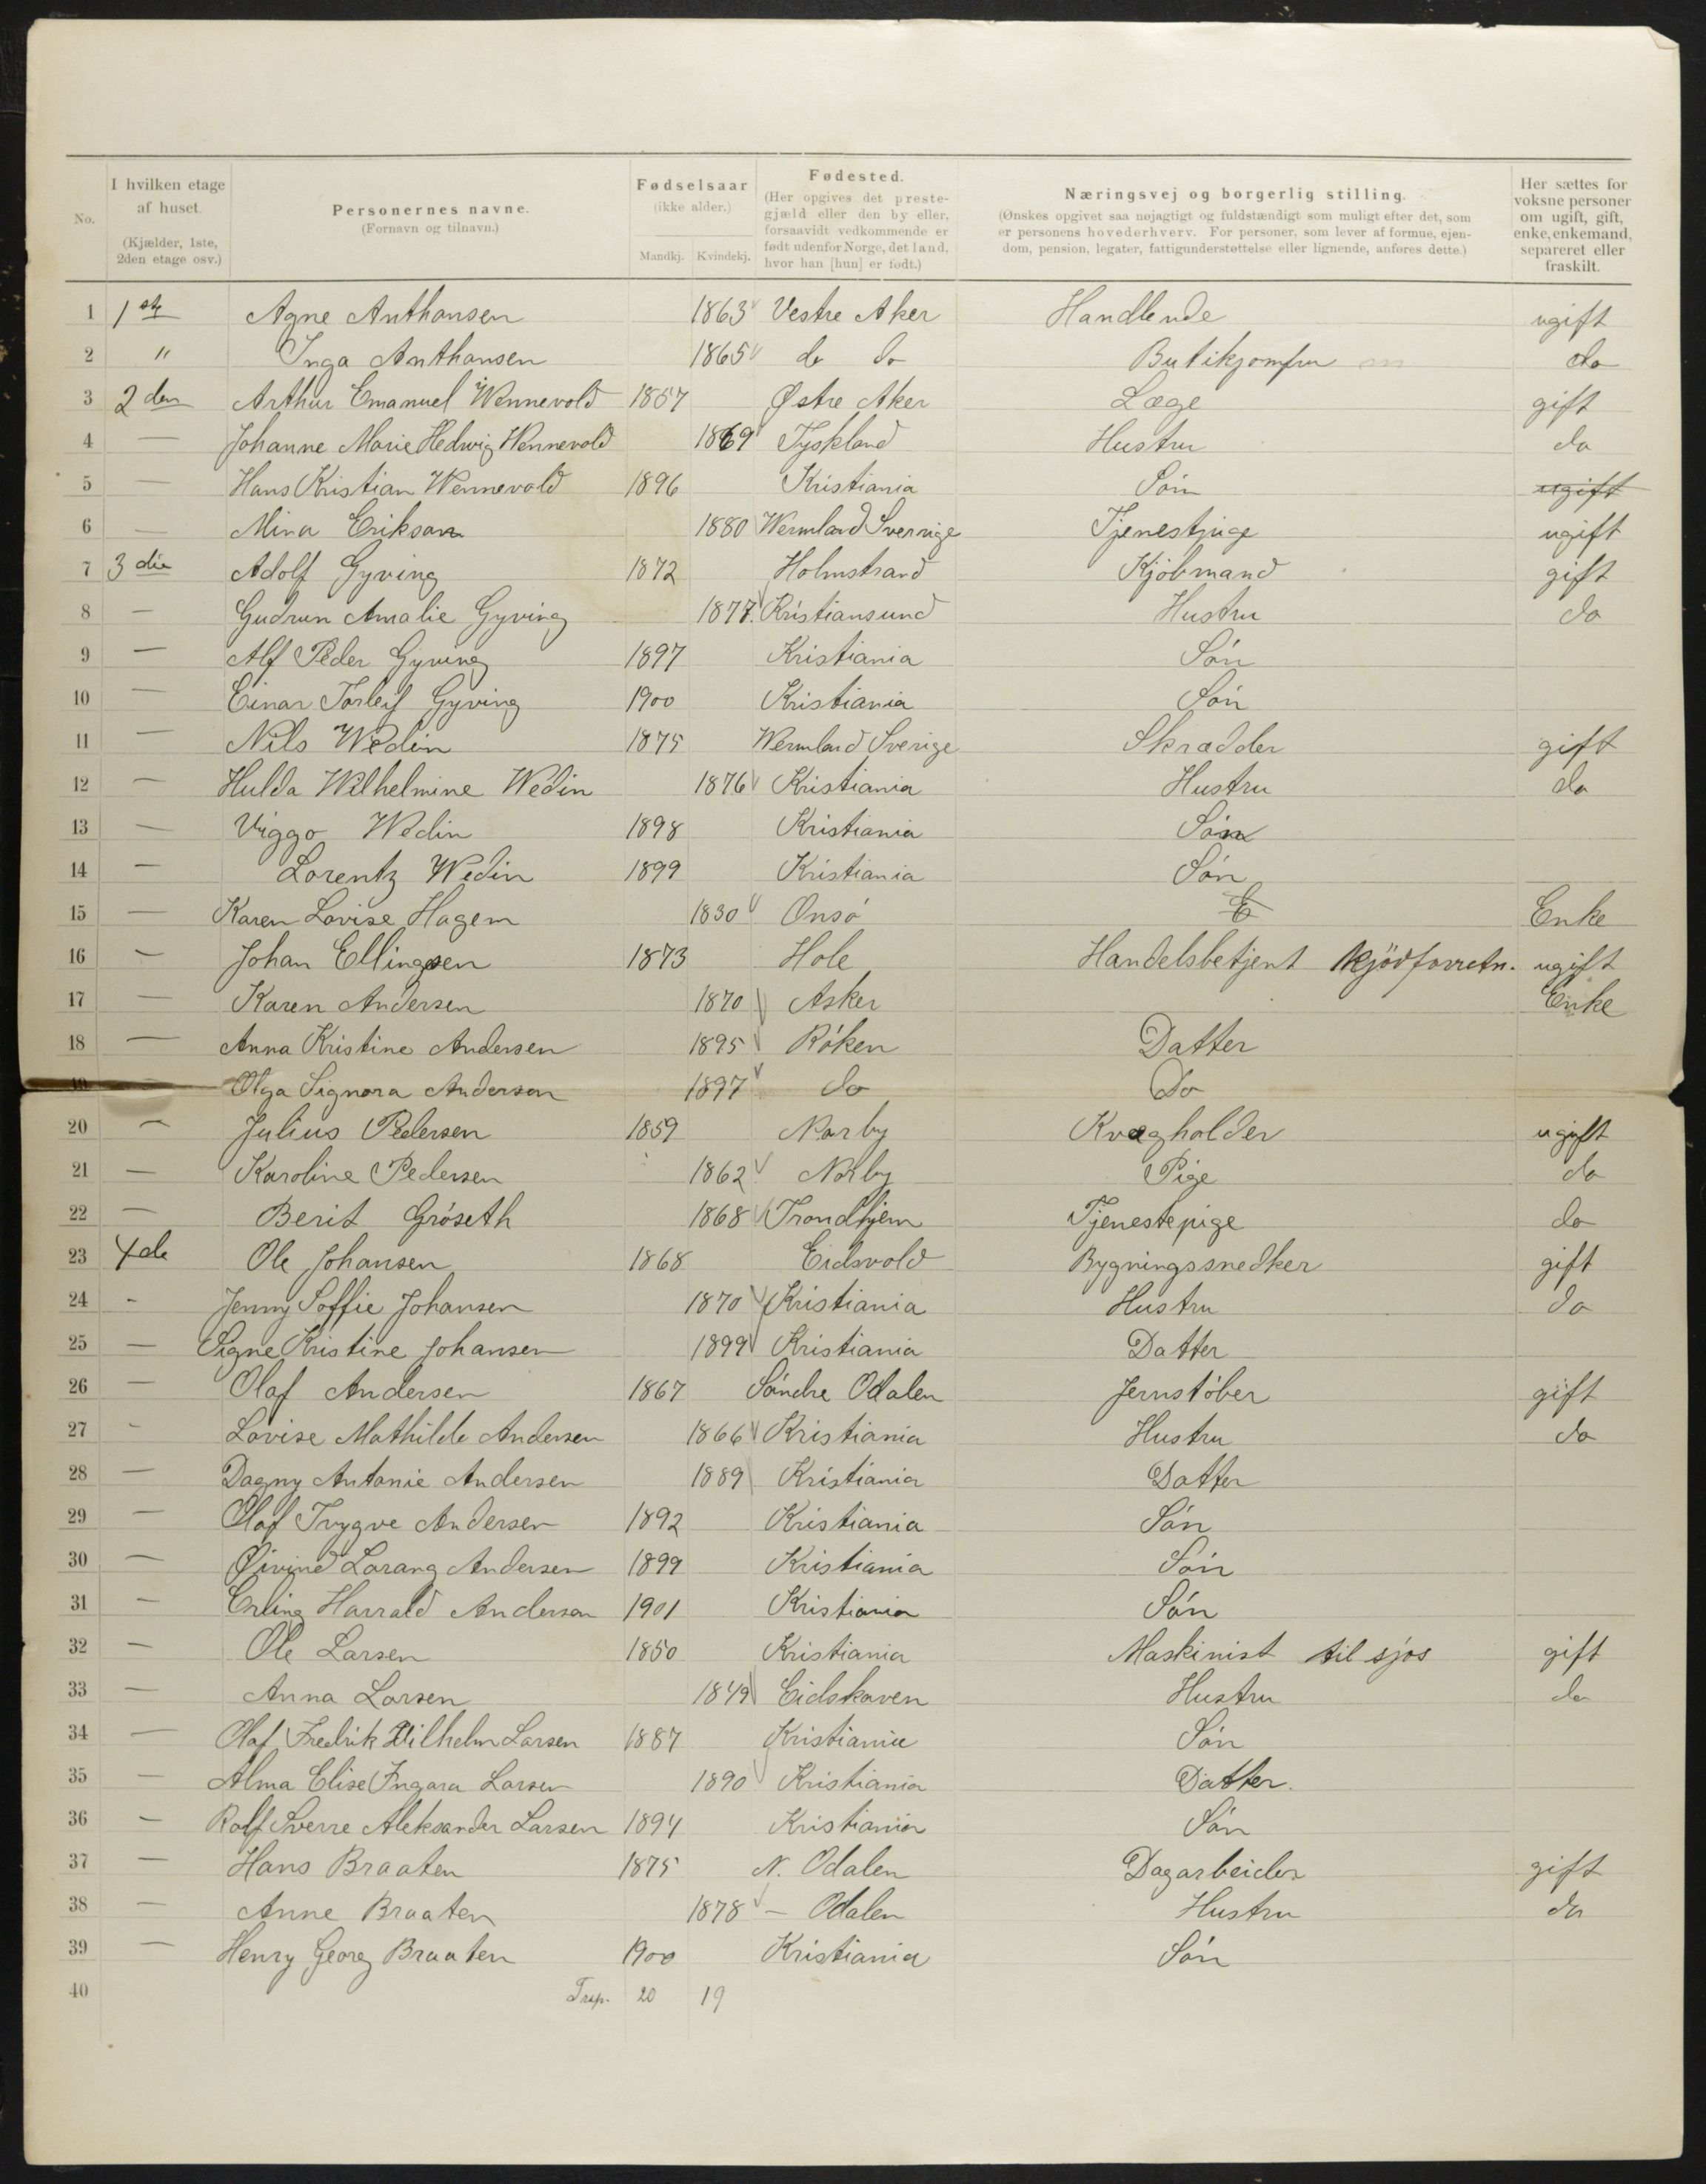 No.
I hvilken etage af huset. (Kjælder, 1ste, 2den etage osv.)
Personernes navne. (Fornavn og tilnavn.)
Fødselsaar (ikke alder.) Mandkj. Kvindekj.
Fødested. (Her opgives det prestegjæld eller den by eller, forsaavidt vedkommende er født udenfor Norge, det land, hvor han [hun] er født.)
Næringsvej og borgerlig stilling. (Ønskes opgivet saa nøjagtigt og fuldstændigt som muligt efter det, som er personens hovederhverv. For personer, som lever af formue, ejendom, pension, legater, fattigunderstøttelse eller lignende, anføres dette.)
Her sættes for voksne personer om ugift, gift, enke, enkemand, separeret eller fraskilt.
1 1ste Agne Anthonsen 1863 Vestre Aker Handlende ugift
2 " Inga Anthonsen 1865 do do Butikjomfru do
3 2den Arthur Emanuel Wennevold 1857 Østre Aker Læge gift
4 — Johanne Marie Hedwig Wennevold 1869 Tyskland Hustru do
5 — Hans Kristian Wennevold 1896 Kristiania Søn ugift
6 — Mina Erikson 1880 Wermland Sverrige Tjenestpige ugift
7 3die Adolf Gyving 1872 Holmstrand Kjøbmand gift
8 — Gudrun Amalie Gyving 1877 Kristiansund Hustru do
9 — Alf Peder Gyving 1897 Kristiania Søn
10 — Einar Torleif Gyving 1900 Kristiania Søn
11 — Nils Wedin 1875 Wermland Sverige Skrædder gift
12 — Hulda Wilhelmine Wedin 1876 Kristiania Hustru do
13 — Viggo Wedin 1898 Kristiania Søn
14 — Lorentz Wedin 1899 Kristiania Søn
15 — Karen Lovise Hagem 1830 Onsø E Enke
16 — Johan Ellingsen 1873 Hole Handelsbetjent Kjødforretn. ugift
17 — Karen Andersen 1870 Asker Enke
18 — Anna Kristine Andersen 1895 Røken Datter
19 — Olga Signora Anderson 1897 do Do
20 — Julius Pedersen 1859 Norby Kvægholder ugift
21 — Karoline Pedersen 1862 Norby Pige do
22 — Berit Grøseth 1868 Trondhjem Tjenestepige do
23 4de Ole Johansen 1868 Eidsvold Bygningssnedker gift
24 - Jenny Soffie Johansen 1870 Kristiania Hustru do
25 — Signe Kristine Johansen 1899 Kristiania Datter
26 — Olaf Andersen 1867 Søndre Odalen Jernstøber gift
27 - Lovise Mathilde Andersen 1866 Kristiania Hustru do
28 — Dagny Antonie Andersen 1889 Kristiania Datter
29 — Olaf Trygve Andersen 1892 Kristiania Søn
30 — Øivind Lorang Andersen 1899 Kristiania Søn
31 — Erling Harrald Anderson 1901 Kristiania Søn
32 — Ole Larsen 1850 Kristiania Maskinist til sjøs gift
33 — Anna Larsen 1849 Eidskoven Hustru do
34 — Olaf Fredrik Wilhelm Larsen 1887 Kristiania Søn
35 — Alma Elise Ingara Larsen 1890 Kristiania Datter.
36 — Rolf Sverre Aleksander Larsen 1894 Kristiania Søn
37 — Hans Braaten 1875 N. Odalen Dagarbeider gift
38 — Anne Braaten 1878 — Odalen Hustru do
39 — Henry Georg Braaten 1900 Kristiania Søn
40 Trsp. 20 19